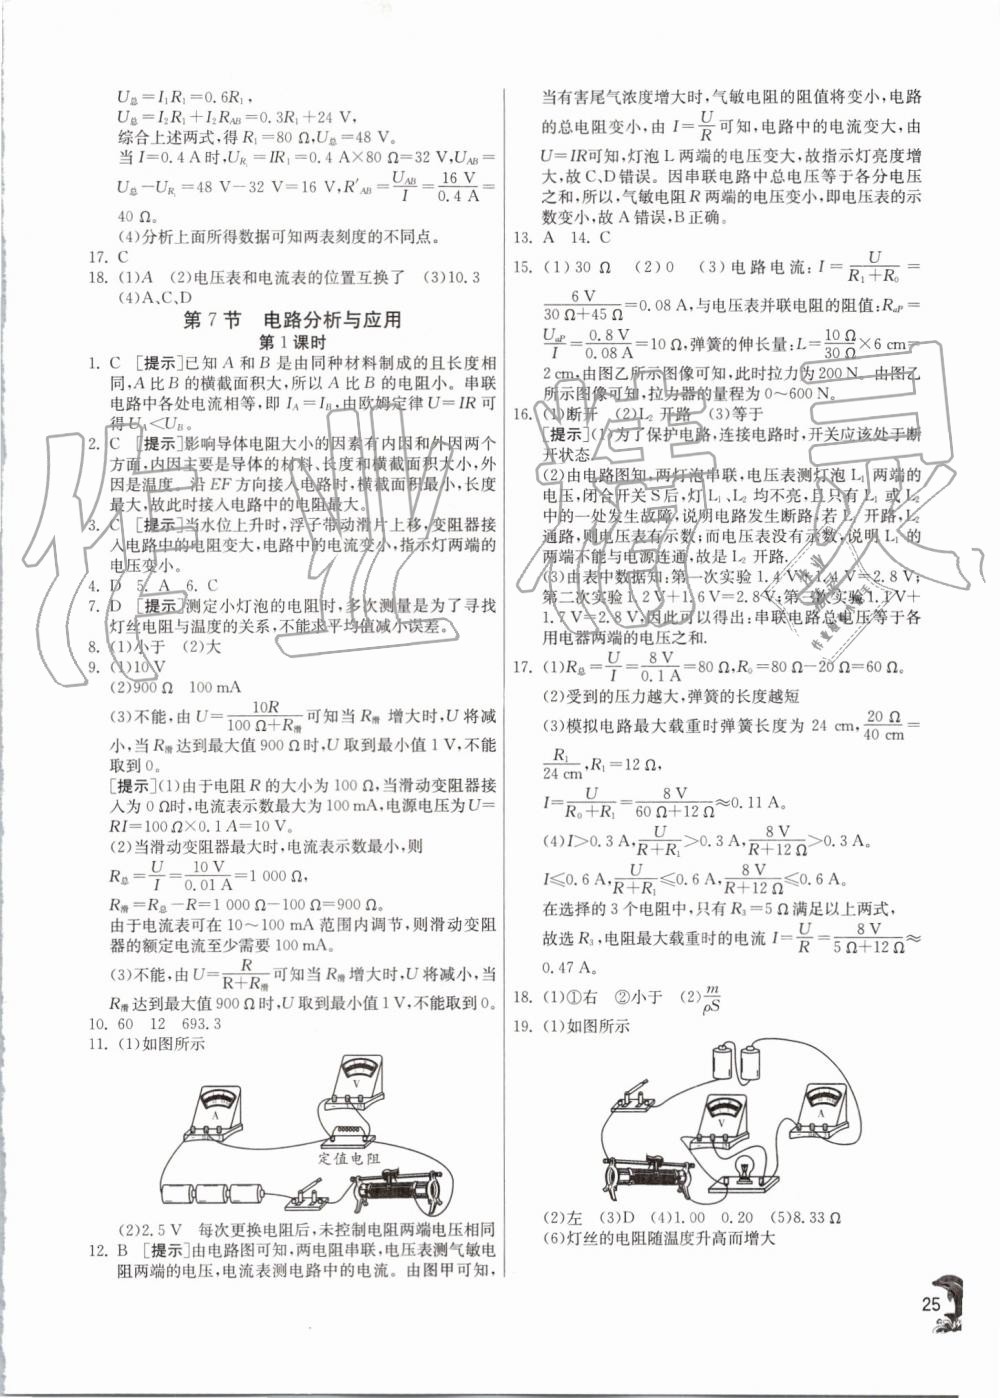 U总=I₁R₁=0.6R₁,
U总=I₂R₁+I₂R_AB=0.3R₁+24 V,
综合上述两式,得 R₁=80 Ω,U总=48 V。
当 I=0.4 A时,U_R₁=IR₁=0.4 A×80 Ω=32 V,U_AB=
U总-U_R₁=48 V-32 V=16 V,R′_AB=U_AB/I=16 V/0.4 A=
40 Ω。
(4)分析上面所得数据可知两表刻度的不同点。
17. C
18. (1)A (2)电压表和电流表的位置互换了 (3)10.3
(4)A、C、D
第7节 电路分析与应用
第1课时
1. C [提示]已知 A 和 B 是由同种材料制成的且长度相
同,A 比 B 的横截面积大,所以 A 比 B 的电阻小。串联
电路中各处电流相等,即 I_A=I_B,由欧姆定律 U=IR 可
得 U_A<U_B。
2. C [提示]影响导体电阻大小的因素有内因和外因两个
方面,内因主要是导体的材料、长度和横截面积大小,外
因是温度。沿 EF 方向接入电路时,横截面积最小,长度
最大,故此时接入电路中的电阻最大。
3. C [提示]当水位上升时,浮子带动滑片上移,变阻器接
入电路中的电阻变大,电路中的电流变小,指示灯两端的
电压变小。
4. D 5. A 6. C
7. D [提示]测定小灯泡的电阻时,多次测量是为了寻找
灯丝电阻与温度的关系,不能求平均值减小误差。
8. (1)小于 (2)大
9. (1)10 V
(2)900 Ω 100 mA
(3)不能,由 U=10R/(100 Ω+R滑)可知当 R滑 增大时,U 将减
小,当 R滑 达到最大值 900 Ω时,U 取到最小值 1 V,不能
取到 0。
[提示](1)由于电阻 R 的大小为 100 Ω,当滑动变阻器接
入为 0 Ω时,电流表示数最大为 100 mA,电源电压为 U=
RI=100 Ω×0.1 A=10 V。
(2)当滑动变阻器最大时,电流表示数最小,则
R总=U/I=10 V/0.01 A=1 000 Ω,
R滑=R总-R=1 000 Ω-100 Ω=900 Ω。
由于电流表可在 10～100 mA 范围内调节,则滑动变阻
器的额定电流至少需要 100 mA。
(3)不能,由 U=R/(R+R滑)可知当 R滑 增大时,U 将减小,当
R滑 达到最大值 900 Ω时,U 取到最小值 1 V,不能取到 0。
10. 60 12 693.3
11. (1)如图所示
A
V
定值电阻
(2)2.5 V 每次更换电阻后,未控制电阻两端电压相同
12. B [提示]由电路图可知,两电阻串联,电压表测气敏电
阻两端的电压,电流表测电路中的电流。由图甲可知,
当有害尾气浓度增大时,气敏电阻的阻值将变小,电路
的总电阻变小,由 I=U/R可知,电路中的电流变大,由
U=IR可知,灯泡 L 两端的电压变大,故指示灯亮度增
大,故 C、D 错误。因串联电路中总电压等于各分电压
之和,所以,气敏电阻 R 两端的电压变小,即电压表的示
数变小,故 A 错误,B 正确。
13. A 14. C
15. (1)30 Ω (2)0 (3)电路电流:I=U/(R₁+R₀)=
6 V/(30 Ω+45 Ω)=0.08 A,与电压表并联电阻的阻值:R_aP=
U_aP/I=0.8 V/0.08 A=10 Ω,弹簧的伸长量:L=10 Ω/30 Ω×6 cm=
2 cm,由图乙所示图像可知,此时拉力为 200 N。由图乙
所示图像可知,拉力器的量程为 0～600 N。
16. (1)断开 (2)L₂ 开路 (3)等于
[提示](1)为了保护电路,连接电路时,开关应该处于断
开状态。
(2)由电路图知,两灯泡串联,电压表测灯泡 L₁ 两端的
电压,闭合开关 S后,灯 L₁、L₂ 均不亮,且只有 L₁ 或 L₂
中的一处发生故障,说明电路发生断路,若 L₁ 开路,L₂
通路,则电压表有示数;而电压表没有示数,说明 L₁ 的
两端不能与电源连通,故是 L₂ 开路.
(3)由表中数据知:第一次实验 1.4 V+1.4 V=2.8 V;
第二次实验 1.2 V+1.6 V=2.8 V;第三次实验 1.1 V+
1.7 V=2.8 V;因此可以得出:串联电路总电压等于各
用电器两端的电压之和.
17. (1)R总=U/I=8 V/0.1 A=80 Ω,R₀=80 Ω-20 Ω=60 Ω。
(2)受到的压力越大,弹簧的长度越短
(3)模拟电路最大载重时弹簧长度为 24 cm,20 Ω/40 cm=
R₁/24 cm,R₁=12 Ω,
I=U/(R₀+R₁)=8 V/(60 Ω+12 Ω)≈0.11 A。
(4)I>0.3 A,U/(R+R₁)>0.3 A,8 V/(R+12 Ω)>0.3 A。
I≤0.6 A,U/(R+R₁)≤0.6 A,8 V/(R+12 Ω)≤0.6 A。
在选择的 3 个电阻中,只有 R₃=5 Ω 满足以上两式,
故选 R₃,电阻最大载重时的电流 I=U/R=8 V/(5 Ω+12 Ω)≈
0.47 A。
18. (1)①右 ②小于 (2)m/ρS
19. (1)如图所示
V
A
(2)左 (3)D (4)1.00 0.20 (5)8.33 Ω
(6)灯丝的电阻随温度升高而增大
25
作业精灵